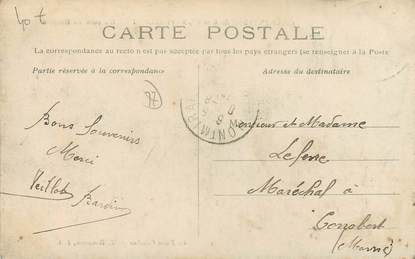 40 t
CARTE POSTALE
La correspondance au recto n'est pas acceptée par tous les pays étrangers (se renseigner à la Poste
Partie réservée à la correspondance
Adresse du destinataire
37
MONTMIRAIL
Bons Souvenirs
Merci
Monsieur et Madame
Maréchal à
Corrobert
(Marne)